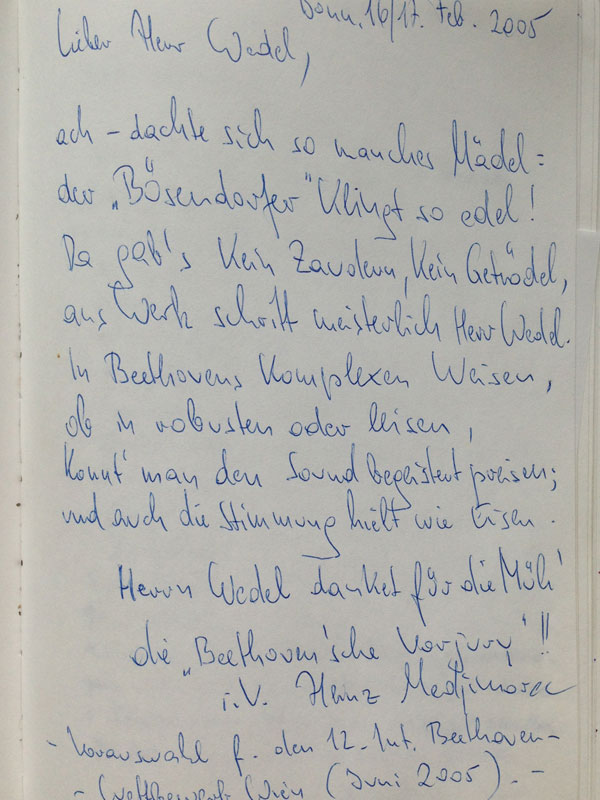 Bonn, 16/17. Feb. 2005
Lieber Herr Wedel,
ach – dachte sich so manches Mädel:
der „Bösendorfer" klingt so edel!
Da gab's kein Zaudern, kein Getrödel,
ans Werk schritt meisterlich Herr Wedel.
In Beethovens komplexen Weisen,
ob in robusten oder leisen,
konnt' man den Sound begeistert preisen;
und auch die Stimmung hielt wie Eisen.
Herrn Wedel danket für die Müh'
die „Beethoven'sche Vorjury"!!
i.V. Heinz Medjimorec
- Vorauswahl f. den 12. Int. Beethoven-
- Wettbewerb Wien (Juni 2005). -